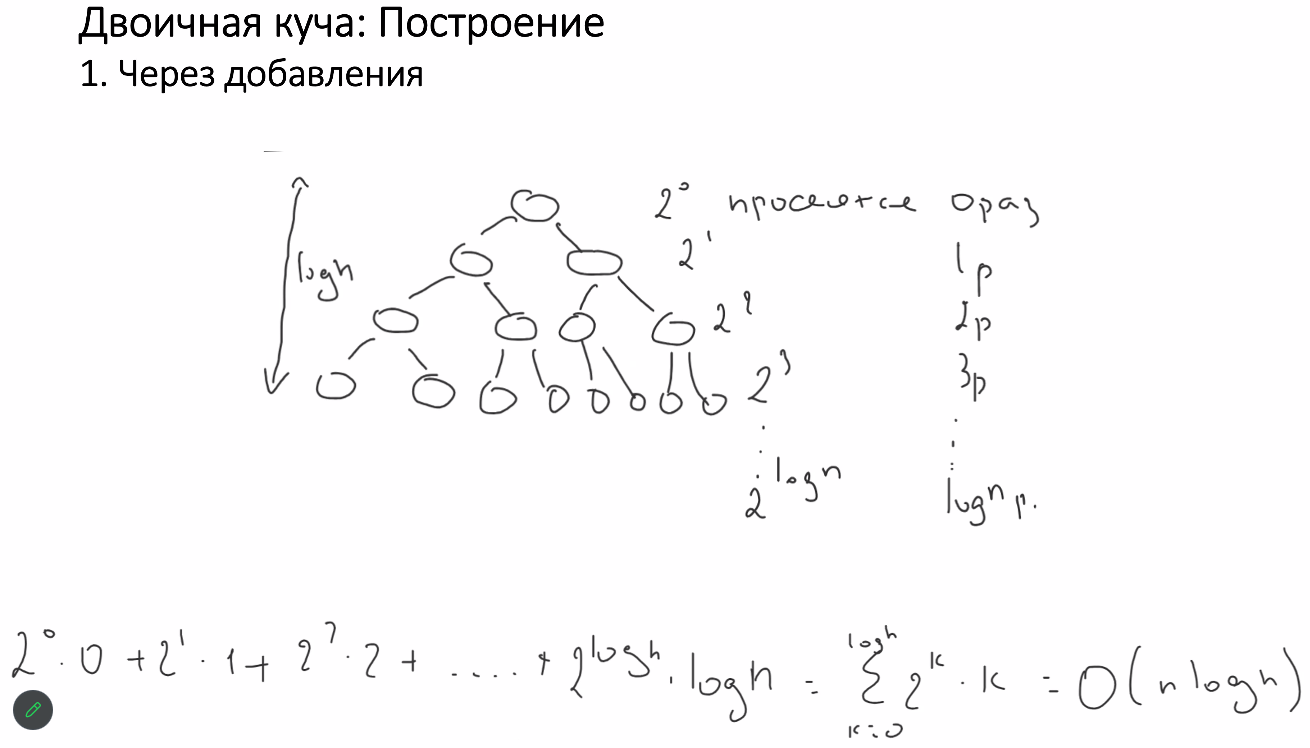 Двоичная куча: Построение
1. Через добавления
2^0 просеется 0 раз
logn
2^1 1 р
2^2 2р
2^3 3р
2^logn logn р.
2^0 · 0 + 2^1 · 1 + 2^2 · 2 + .... + 2^logn · logn = ∑_{k=0}^{logn} 2^k · k = O(n logn)